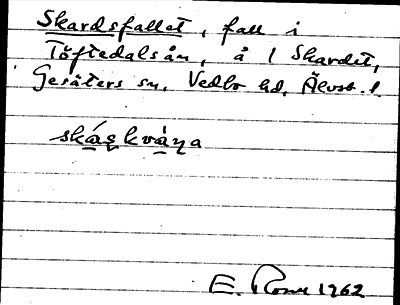 Skardsfallet, fall i
Töftedalsån, å i Skardet,
Gesäters sn, Vedbo hd, Älvsb. l.
skáṣkvàṇa
E. 1962